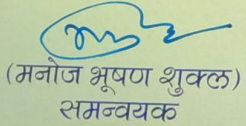 (मनोज भूषण शुक्ल)
समन्वयक